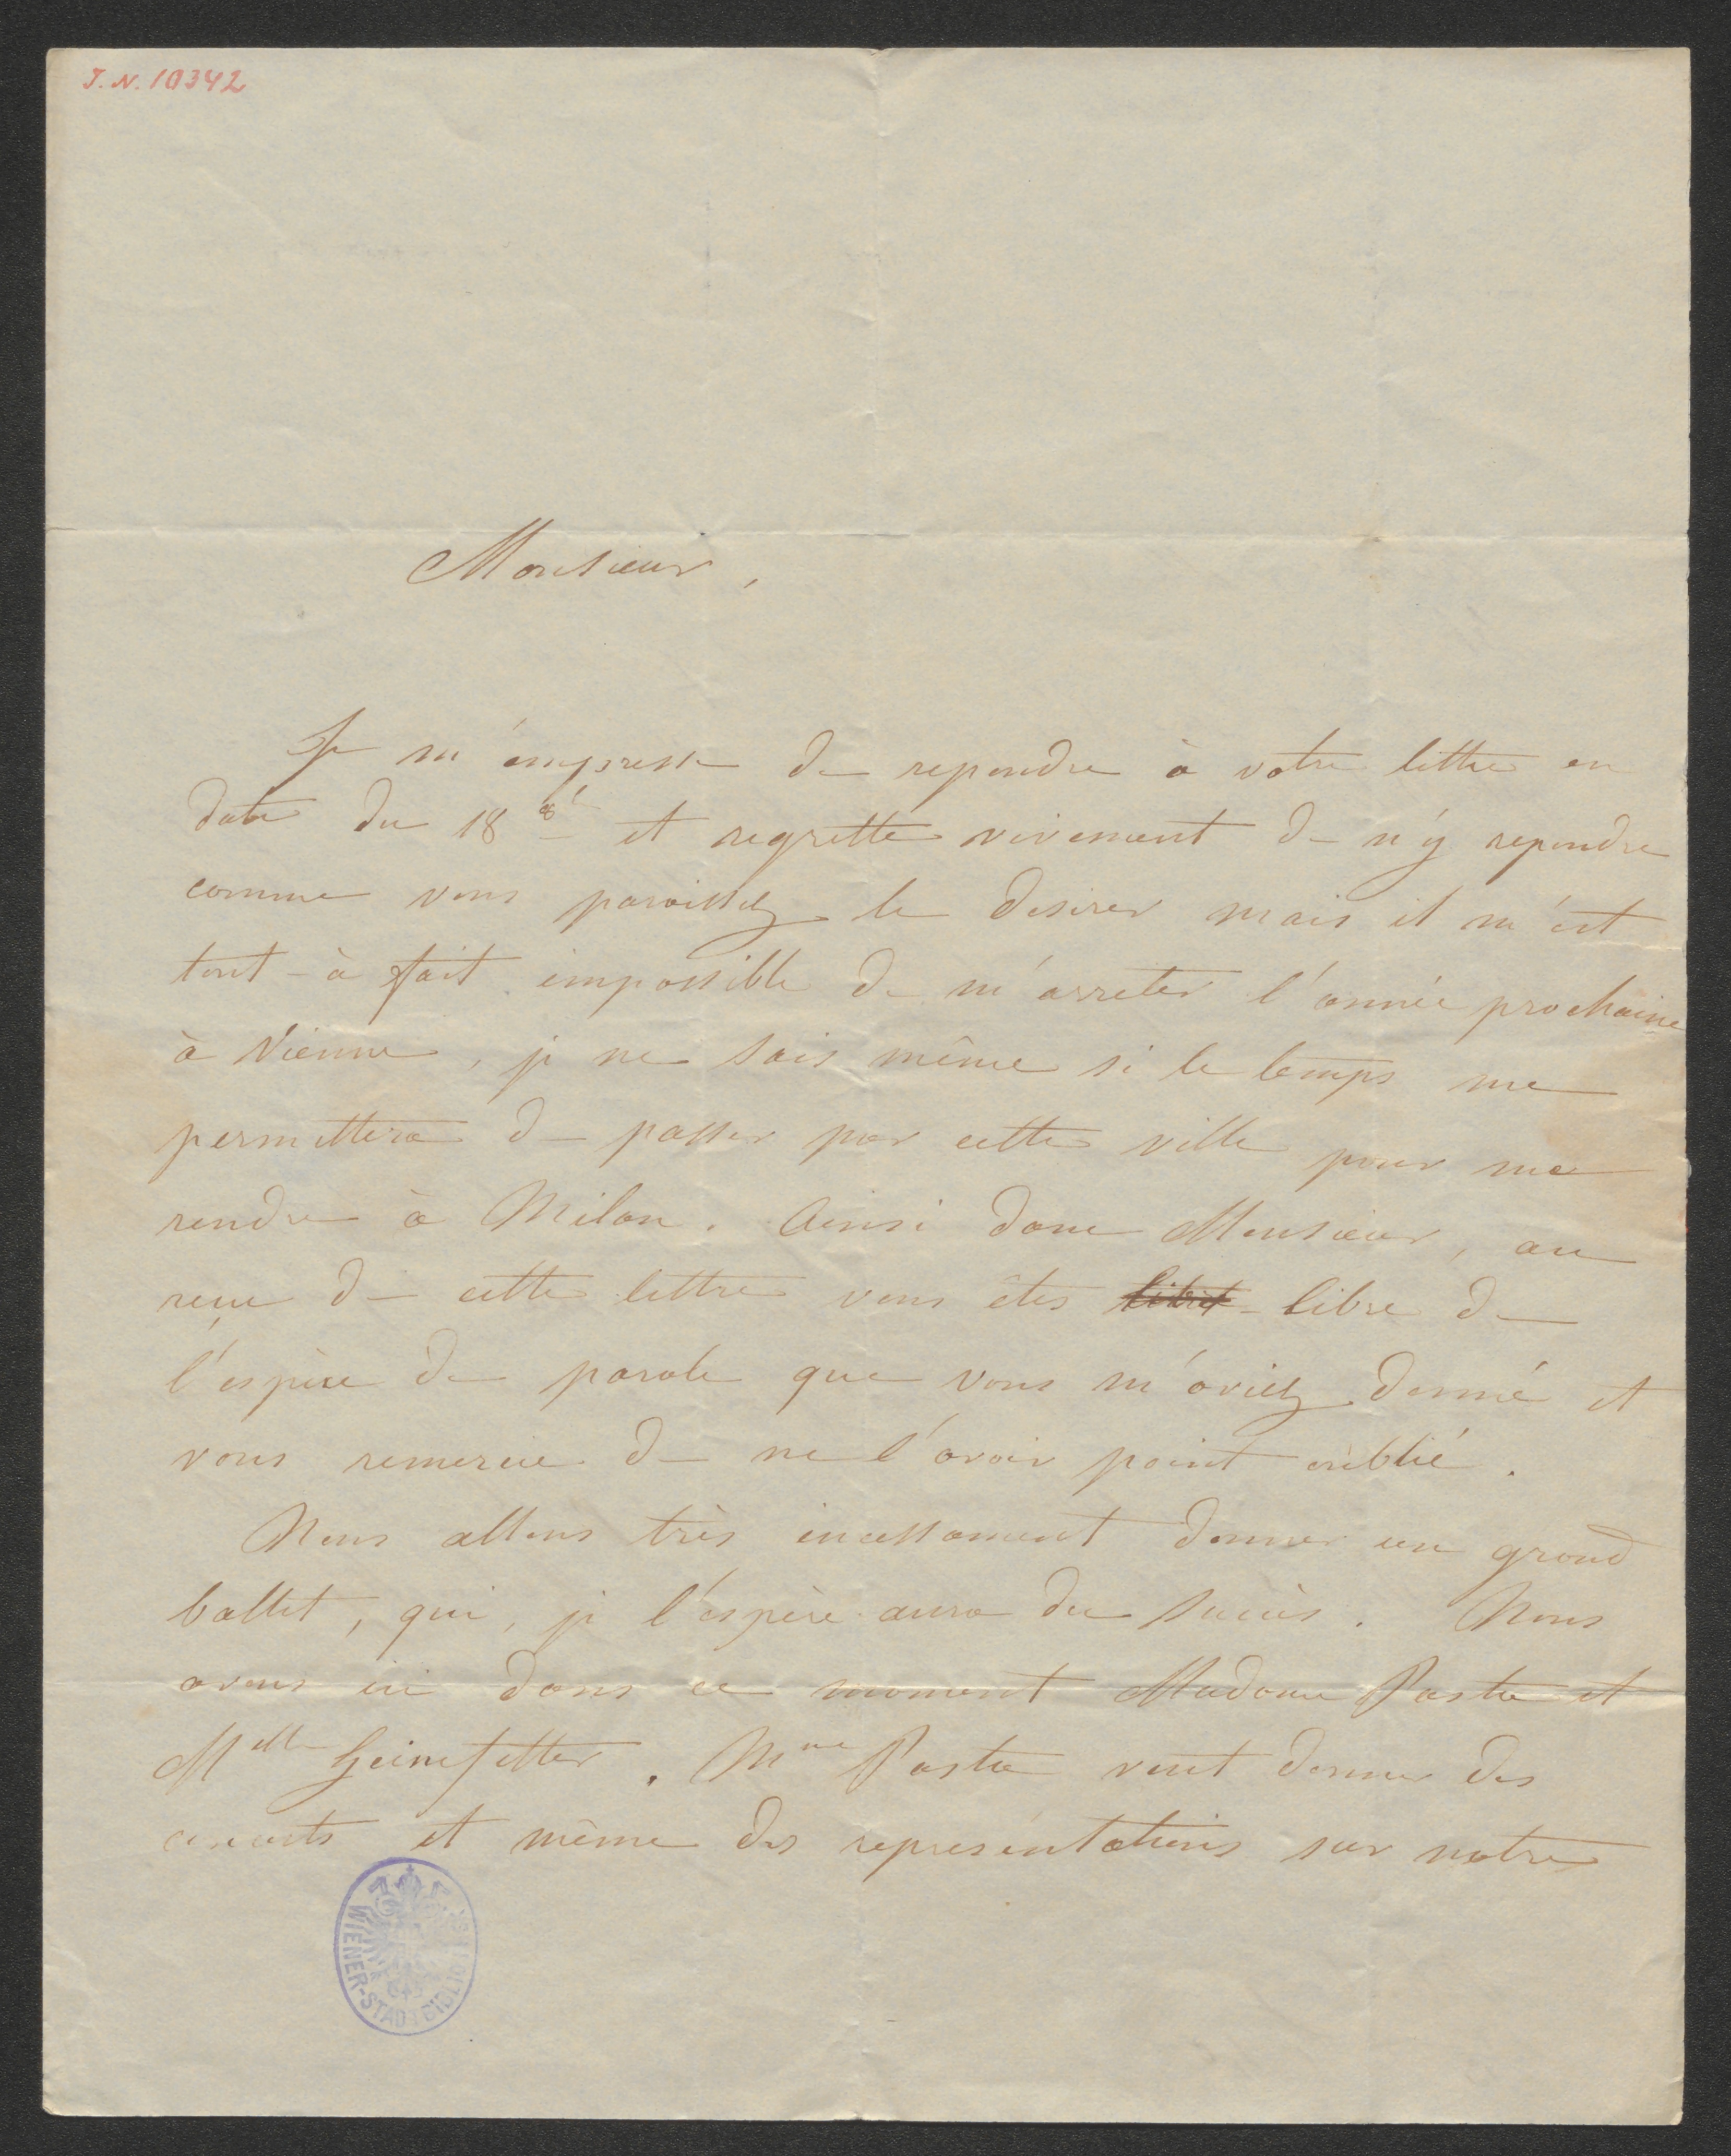 J.N. 10342
Monsieur,
Je m'émpresse de repondre à votre lettre en
date du 18 8^{bre} et regrette vivement de n'y repondre
comme vous paroissez le desirer mais il m'est
tout-à fait impossible de m'arreter l'année prochaine
à Vienne, je ne sais même si le temps me
permettera de passer par cette ville pour me
rendre à Milan. Ainsi donc Monsieur, au
reçu de cette lettre vous êtes libre de
l'espèce de parole que vous m'aviez donné et
vous remercie de ne l'avoir point oublié.
Nous allons très incessament donner un grand
ballet, qui, je l'espère aura du succès. Nous
avons ici dans ce moment Madame Pasta et
M^{elle} Heinefetter. M^{me} Pasta veut donner des
concerts et même des representations sur notre
WIENER-STADTBIBLIOTHEK